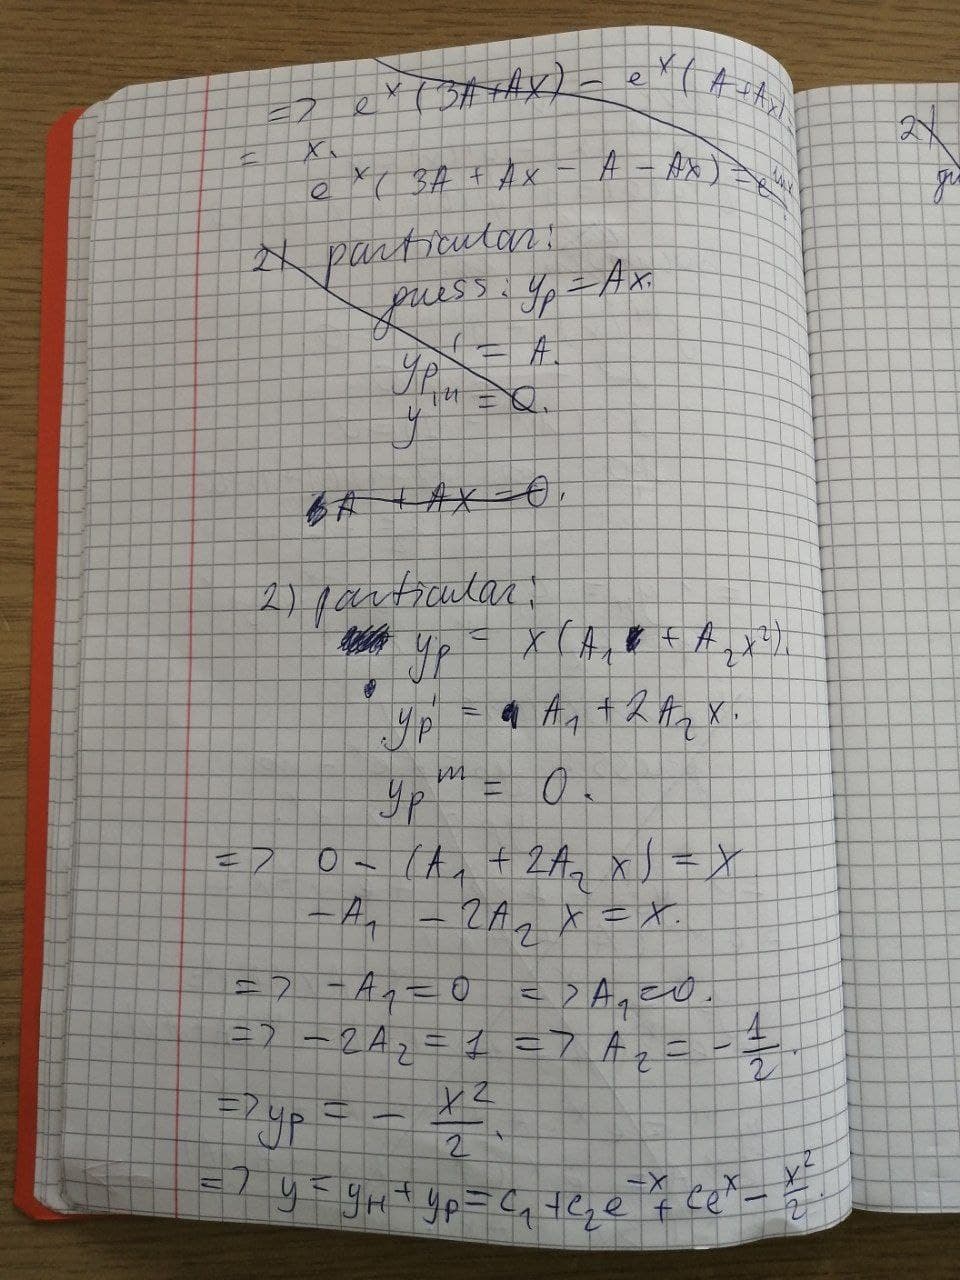 => eˣ(3A+Ax) − eˣ(A+Ax)
= x.
eˣ(3A + Ax − A − Ax) = e
2) particular:
guess: yp = Ax.
yp' = A.
y''' = 0.
A + Ax = 0.
2) particular:
yp = x(A₁ + A₂x²).
yp' = A₁ + 2A₂x.
yp''' = 0.
=> 0 − (A₁ + 2A₂x) = x
−A₁ − 2A₂x = x.
=> −A₁ = 0 => A₁ = 0.
=> −2A₂ = 1 => A₂ = −1/2.
=> yp = − x²/2.
=> y = yH + yp = c₁ + c₂e⁻ˣ + ceˣ − x²/2.
2)